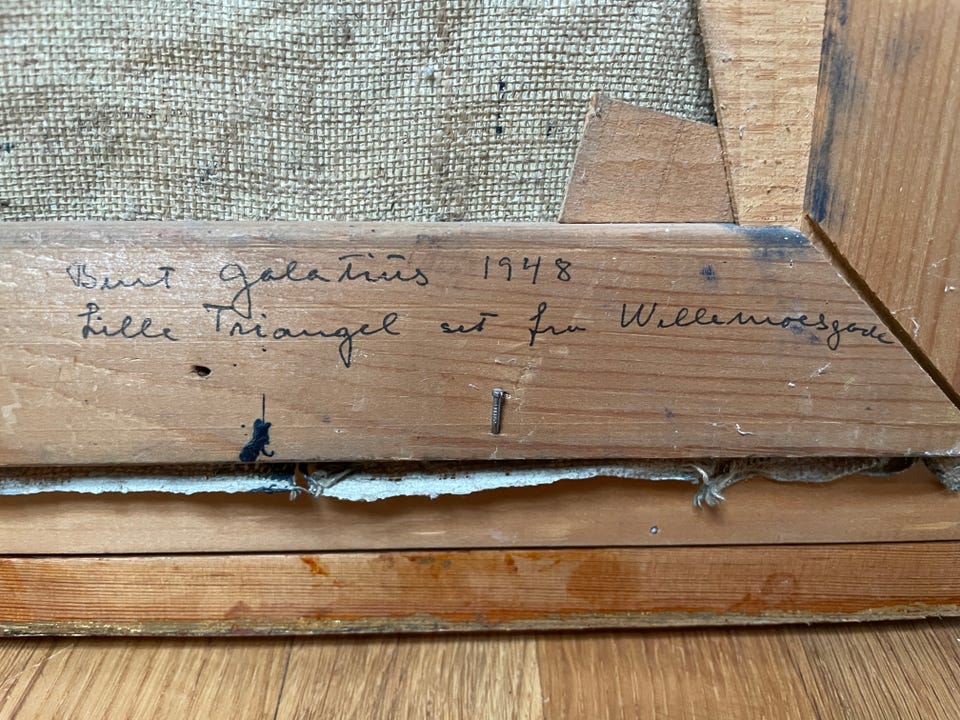 Bent Galatius 1948
Lille Triangel set fra Willemoesgade